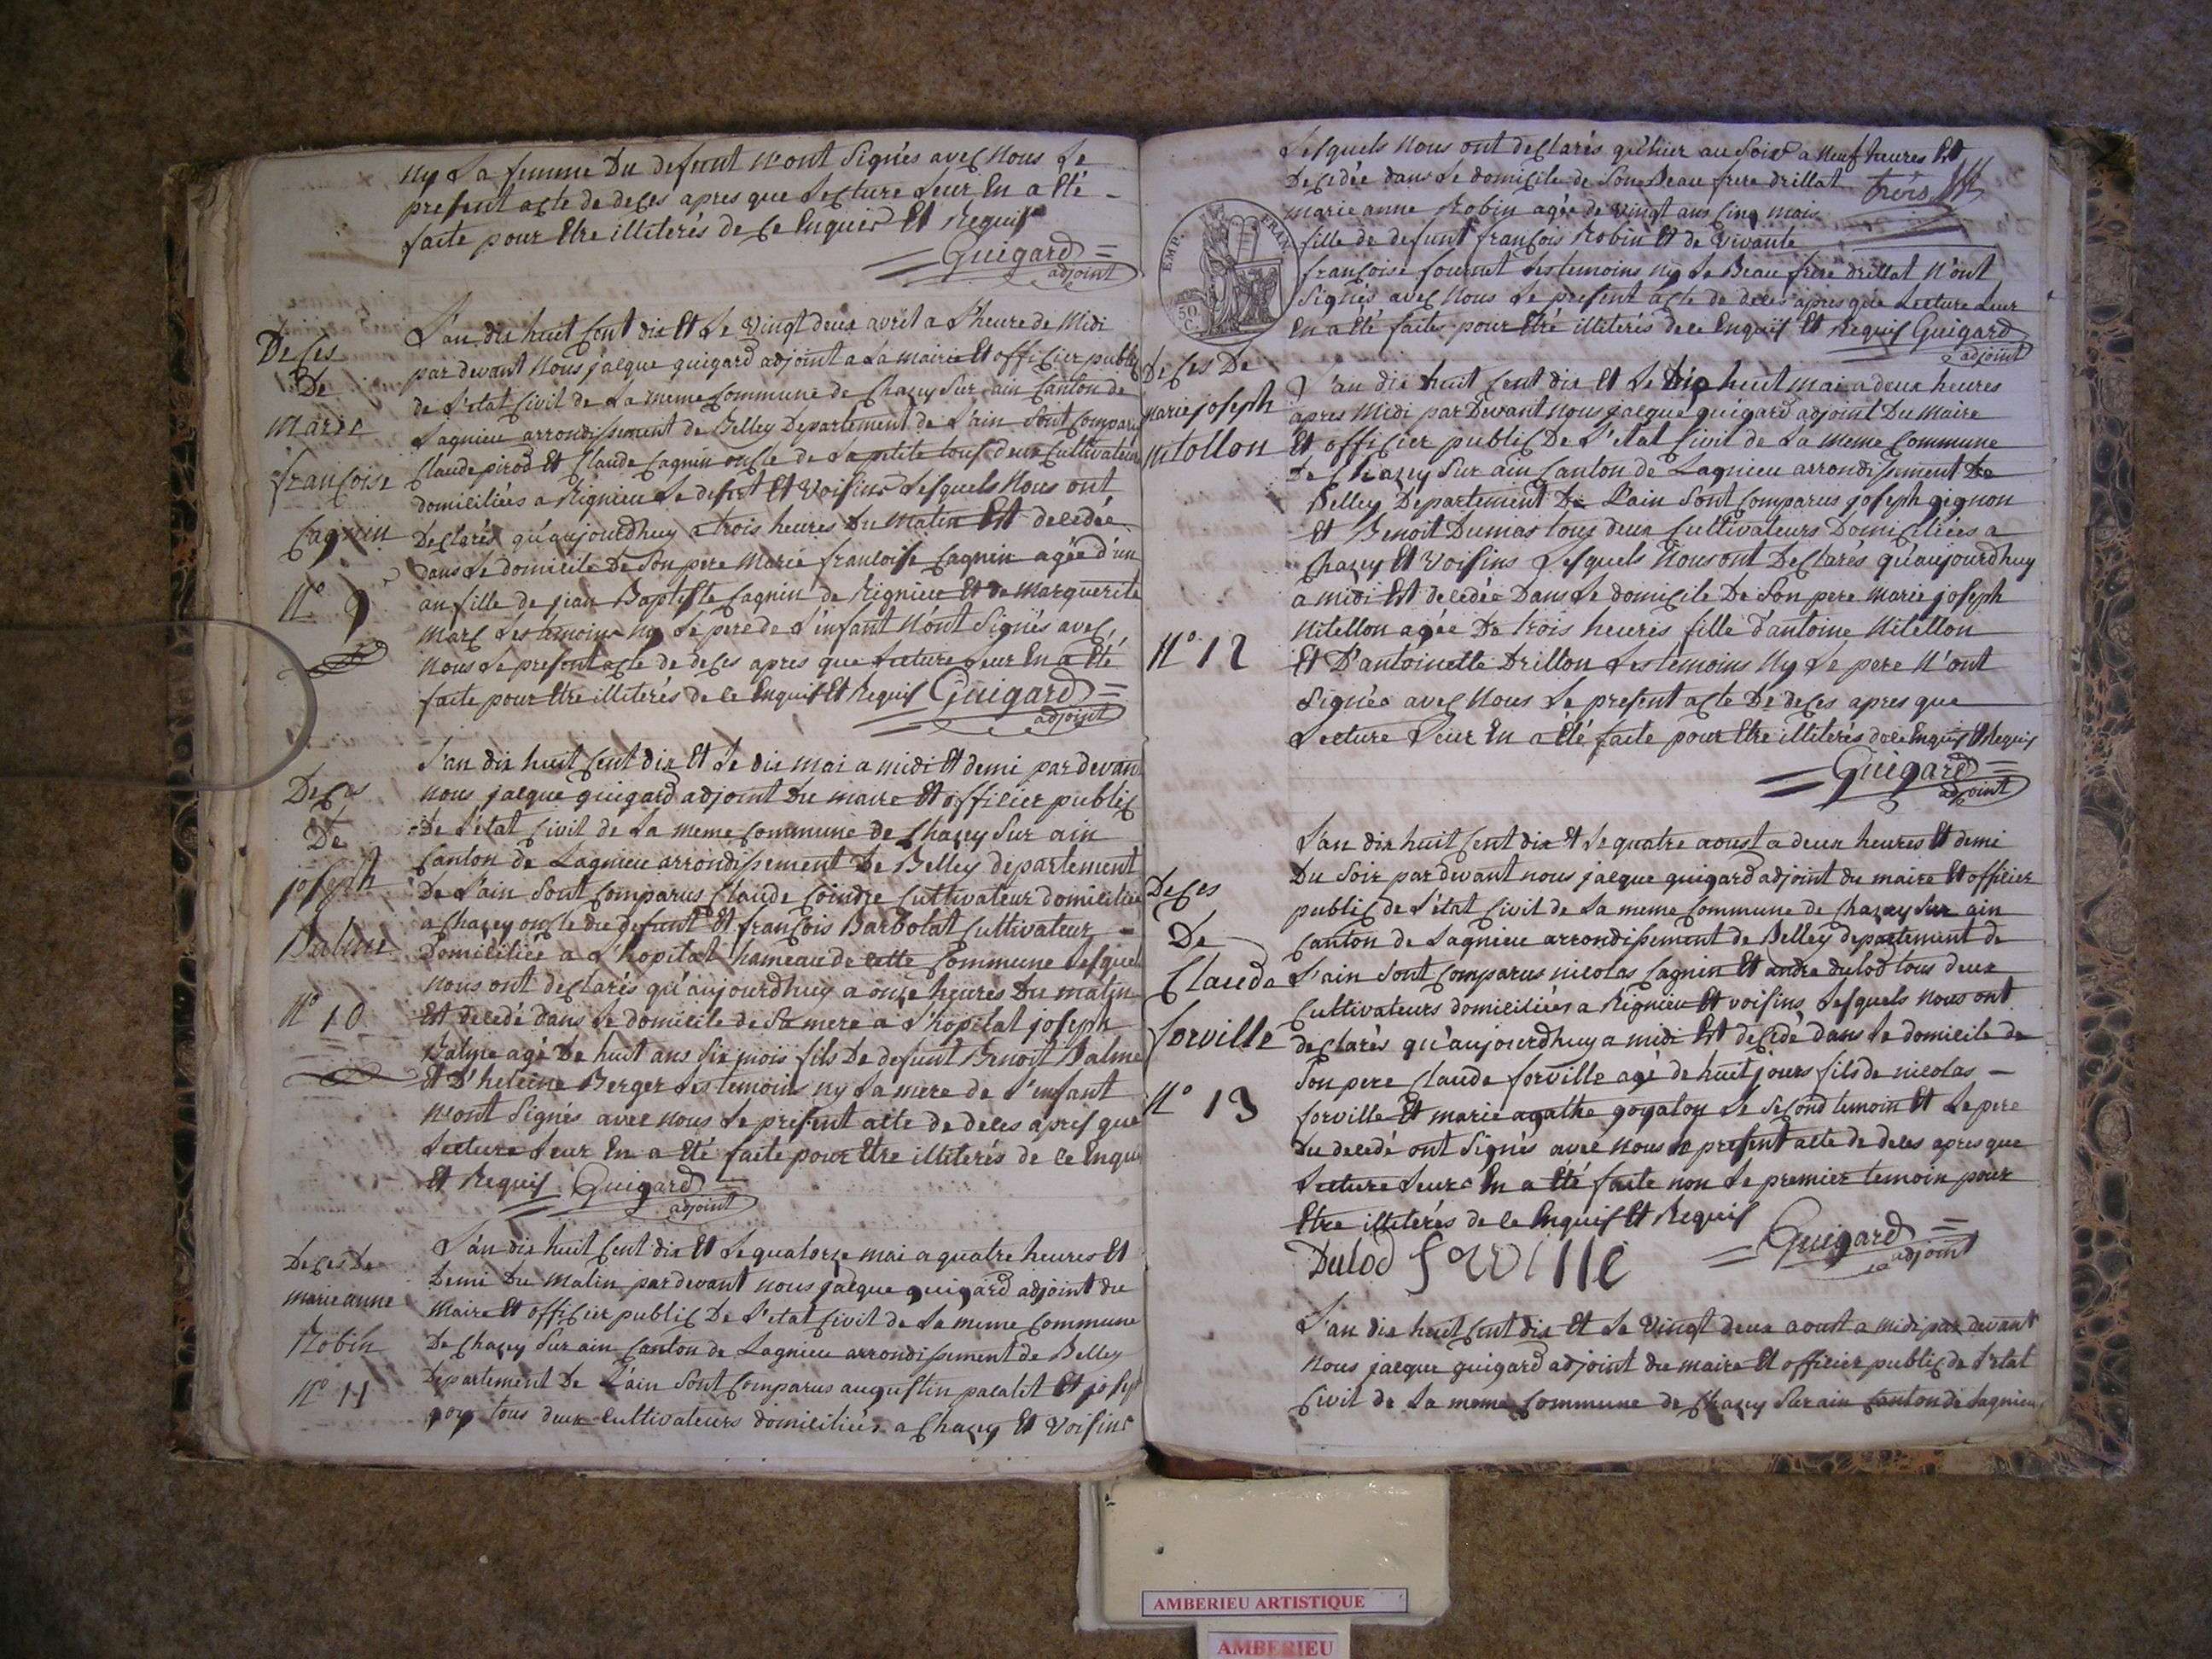 ny La femme Du defunt n'ont Signés avec Nous Le
present acte de deces apres que Lecture Leur En a Eté
faite pour Etre illiterés de ce Enquis Et Requis
Guigard
adjoint
Deces
De
Marie
françoise
Cagnin
N° 9
L'an dix huit Cent dix Et Le Vingt deux avril a L'heure de Midi
par devant Nous jacque guigard adjoint a La mairie Et officier public
de L'etat Civil de La meme Commune de Chazey Sur ain Canton de
Lagnieu arrondissement de Belley Departement de L'ain Sont Comparus
Claude pirod Et Claude Cagnin oncle de La petite tous deux Cultivateurs
domiciliées a Rignieu Le desert Et Voisins Lesquels Nous ont
Declarés qu'aujourdhuy a trois heures Du Matin Est decedée
dans Le domicile De Son pere Marie francoise Cagnin agée d'un
an fille de jean Baptiste Cagnin de Rignieu Et de Marguerite
Marc Les temoins ny Le pere de L'enfant N'ont Signés avec
Nous Le present acte de deces apres que Lecture Leur En a Eté
faite pour Etre illiterés de ce Enquis Et Requis Guigard
adjoint
Deces
De
joseph
Balme
N° 10
L'an dix huit Cent dix Et Le dix mai a midi Et demi par devant
nous jacque guigard adjoint du maire Et officier public
De L'état Civil de La meme Commune de Chazey Sur ain
Canton de Lagnieu arrondissement De Belley departement
De L'ain Sont Comparus Claude Coindre Cultivateur domicilié
a Chazey oncle du defunt Et françois Barbolat Cultivateur
Domiciliée a L'hopital hameau de cette Commune Lesquels
nous ont declarés qu'aujourdhuy a onze heures Du matin
Est decedé dans Le domicile de Sa mere a L'hopital joseph
Balme agé De huit ans Six mois fils De defunt Benoit Balme
Et D'heleine Berger Les temoins ny La mere de L'enfant
N'ont Signés avec nous Le present acte de deces apres que
Lecture Leur En a Eté faite pour Etre illiterés de ce Enquis
Et Requis Guigard
adjoint
Deces De
marie anne
Robin
N° 11
L'an dix huit Cent dix Et Le quatorze mai a quatre heures Et
Demi Du Matin par devant nous jacque guigard adjoint du
Maire Et officier public De L'etat Civil de La meme Commune
De Chazey Sur ain Canton de Lagnieu arrondissement de Belley
Departement De L'ain Sont Comparus augustin pacalet Et joseph
goy tous deux Cultivateurs domiciliées a Chazey Et Voisins
Lesquels Nous ont declarés qu'hier au Soir a Neuf heures Est
Decedée dans Le domicile de Son Beau frere drillat
marie anne Robin agée de Vingt ans Cinq mois
fille de defunt françois Robin Et de Vivante
françoise fournet Les temoins ny Le Beau frere drillat N'ont
Signés avec Nous Le present acte de deces apres que Lecture Leur
En a Eté faite pour Etré illiterés de ce Enquis Et Requis Guigard
adjoint
EMP. FRAN
50
C.
Deces De
Marie joseph
Nitollon
N° 12
L'an dix huit Cent dix Et Le Dix huit mai a deux heures
apres Midi par Devant Nous jacque guigard adjoint Du Maire
Et officier public De L'etat Civil de La meme Commune
De Chazey Sur ain Canton de Lagnieu arrondissement De
Belley Departement De L'ain Sont Comparus joseph gignon
Et Benoit Dumas tous deux Cultivateurs Domiciliées a
Chazey Et Voisins Lesquels Nous ont Declarés qu'aujourdhuy
a midi Est decedée Dans Le domicile De Son pere Marie joseph
Nitellon agée De trois heures fille d'antoine Nitellon
Et D'antoinette Drillon Les temoins Ny Le pere N'ont
Signés avec Nous Le present acte De deces apres que
Lecture Leur En a Eté faite pour Etre illiterés de ce Enquis Et Requis
Guigard
adjoint
Deces
De
Claude
forville
N° 13
L'an dix huit Cent dix Et Le quatre aoust a deux heures Et demi
Du Soir par devant nous jacque guigard adjoint du maire Et officier
public de L'état Civil de La meme Commune de Chazey Sur ain
Canton de Lagnieu arrondissement de Belley departement de
L'ain Sont Comparus nicolas Cagnin Et andre dulod tous deux
Cultivateurs domiciliées a Rignieu Et voisins Lesquels nous ont
declarés qu'aujourdhuy a midi Est decedé dans Le domicile de
Son pere Claude forville agé de huit jours fils de nicolas
forville Et marie agathe goyaton Le Second temoin Et Le pere
Du decedé ont Signés avec nous Le present acte de deces apres que
Lecture Leur En a Eté faite non Le premier temoin pour
Etre illiterés de ce Enquis Et Requis
Guigard
adjoint
Dulod forville
L'an dix huit Cent dix Et Le Vingt deux aoust a midi par devant
Nous jacque guigard adjoint du maire Et officier public de L'etat
Civil de La meme Commune de Chazey Sur ain Canton de Lagnieu
AMBERIEU ARTISTIQUE
AMBERIEU